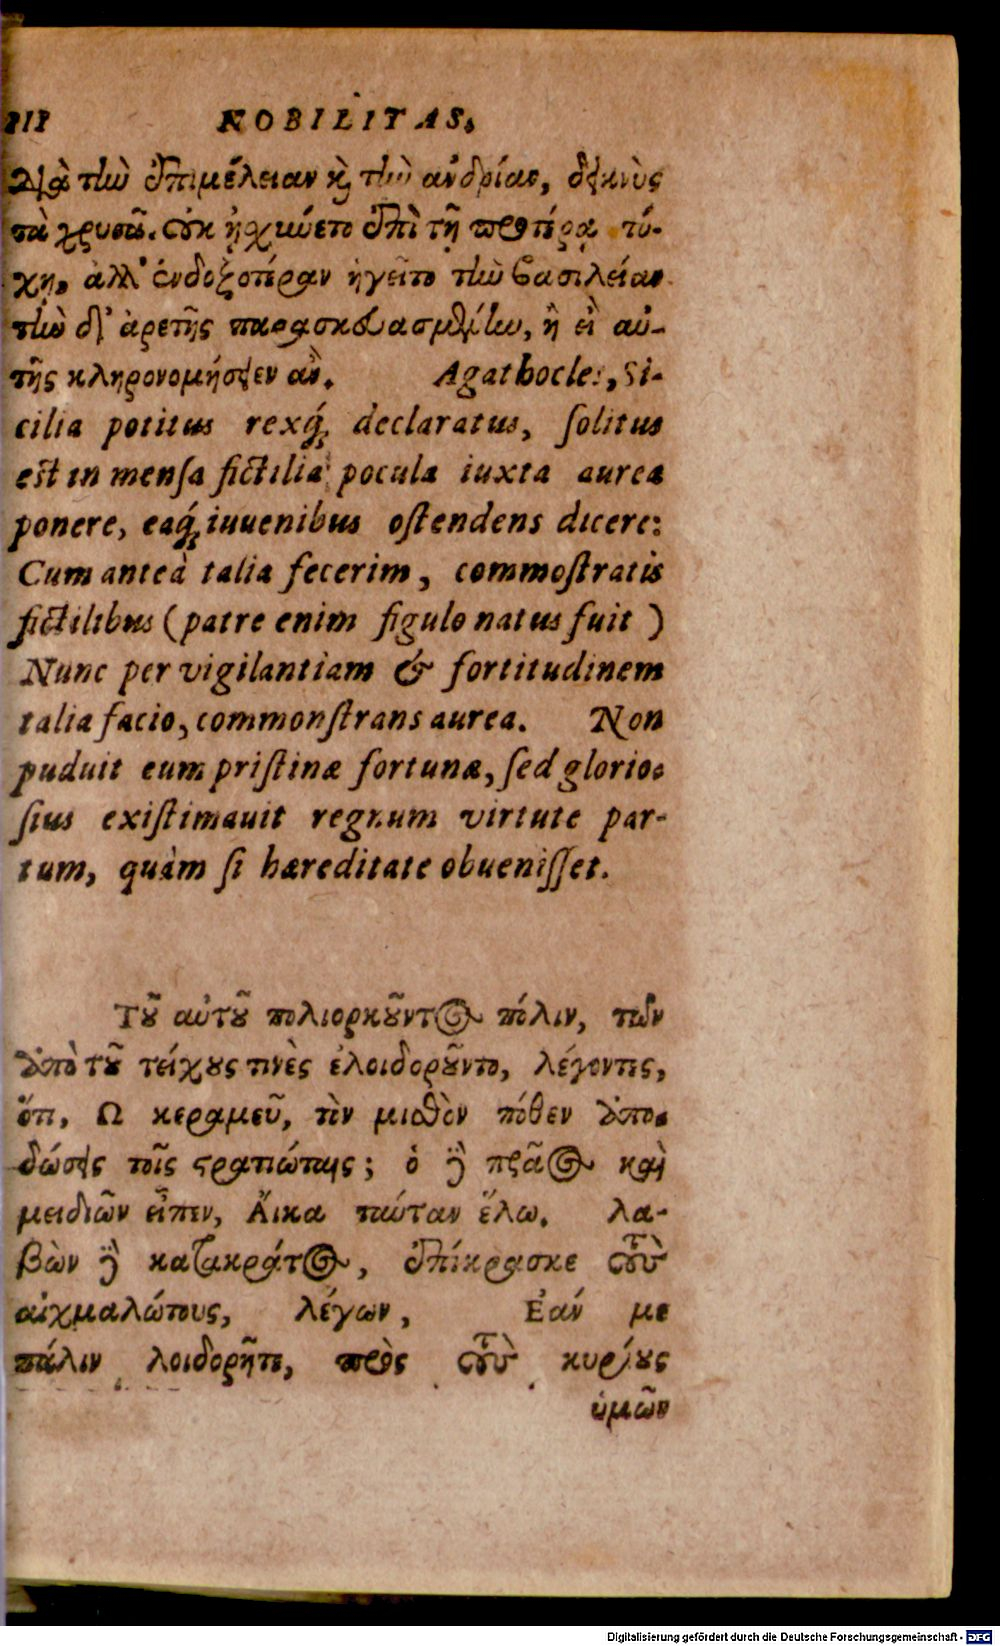 NOBILITAS.
διὰ τὴν ἐπιμέλειαν καὶ τὴν ἀνδρίαν, δεικνὺς
τὰ χρυσᾶ. οὐκ ᾐσχύνετο ἐπὶ τῇ προτέρᾳ τύ-
χῃ, ἀλλ' ἐνδοξοτέραν ἡγεῖτο τὴν βασιλείαν
τὴν δι' ἀρετῆς παρασκευασμένην, ἢ εἰ αὐ-
τῆς κληρονομήσειεν ἄν. Agathocles, Si-
cilia potitus rexq́; declaratus, ſolitus
est in menſa fictilia pocula iuxta aurea
ponere, eaq́; iuuenibus oſtendens dicere:
Cum anteà talia fecerim, commoſtratis
fictilibus (patre enim figulo natus fuit)
Nunc per vigilantiam & fortitudinem
talia facio, commonſtrans aurea. Non
puduit eum priſtinæ fortunæ, ſed glorio-
ſius exiſtimauit regnum virtute par-
tum, quàm ſi hæreditate obueniſſet.
Τοῦ αὐτοῦ πολιορκοῦντος πόλιν, τῶν
ἀπὸ τοῦ τείχους τινὲς ἐλοιδοροῦντο, λέγοντες,
ὅτι, Ω κεραμεῦ, τὸν μισθὸν πόθεν ἀπο-
δώσεις τοῖς στρατιώταις; ὁ δὲ πρᾶος καὶ
μειδιῶν εἶπεν, Αἴκα ταύταν ἕλω. λα-
βὼν δὲ κατακράτος, ἐπίπρασκε τοὺς
αἰχμαλώτους, λέγων, Ἐάν με
πάλιν λοιδορῆτε, πρὸς τοὺς κυρίους
ὑμῶν
Digitalisierung gefördert durch die Deutsche Forschungsgemeinschaft - DFG